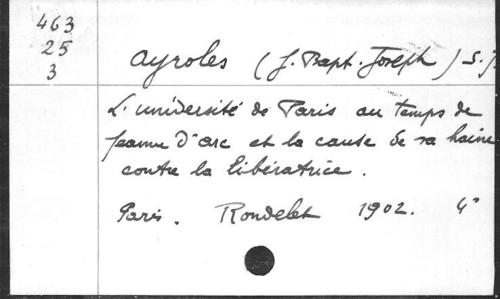 463
25
3
Ayroles (J. Bapt. Joseph) S. J.
L'université de Paris au temps de
Jeanne d'Arc et la cause de sa haine
contre la libératrice.
Paris. Rondelet 1902. 4°